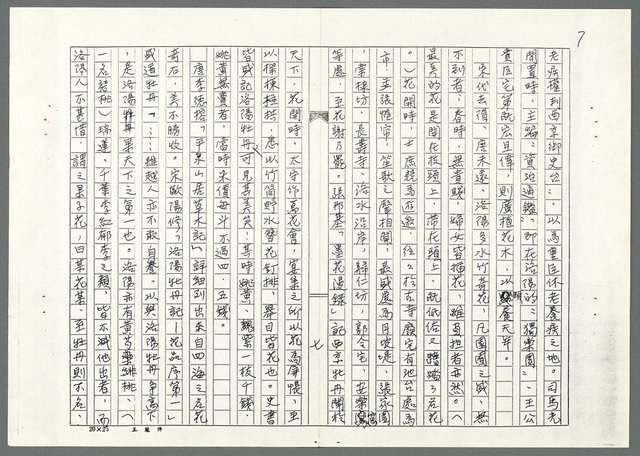 7
老病權到西京御史台⋯，以為重臣休老養疾之地。司馬光
閒置時，主編「資治通鑑」，即在洛陽的「獨樂園」，王公
貴臣宅第既宏且偉，則廣植花木，以頤養天年。
宋代去唐，庶未遠。洛陽多水竹奇花，凡園囿之盛，無
不到者，春時，無貴賤，婦女皆插花，雖負担者亦然。（
最美的花是開在枝頭上，帶在頭上，既低俗又蹧蹋了名花
。）花開時，士庶競為遊遨，往々於古寺廢宅有池台處為
市，並張幄帟，笙歌之聲相聞，最盛處為月坡堤、張家園
，棠棣坊、長壽寺、洛水沿岸，歸仁坊，郭令宅，安樂窩
等處，至花謝乃罷。張邦基「墨花漫錄」記西京牡丹開於
天下，花開時，太守作萬花會，宴集之所以花為屏帳，至
以樑棟柱拱，悉以竹筒貯水簪花釘掛，舉目皆花也。史書
皆盛記洛陽牡丹，可見其美矣，其時姚黃、魏紫一枝千錢，
姚黃無賣者，當時米價每斗不過四、五錢。
唐李德裕「平泉山居草木記」詳細列出來自四海之名花
奇石，美不勝收。宋歐陽修「洛陽牡丹記—花品序第一」
盛道牡丹「⋯⋯雖越人亦不敢自譽。以與洛陽牡丹爭高下
，是洛陽牡丹果天下之第一也。洛陽亦有黃芍藥緋桃、（
一名碧桃）瑞蓮、千葉李紅郁李之類，皆不減他出者，而
洛陽人不甚惜，謂之果子花，曰某花某，至牡丹則不名，
七
20×25